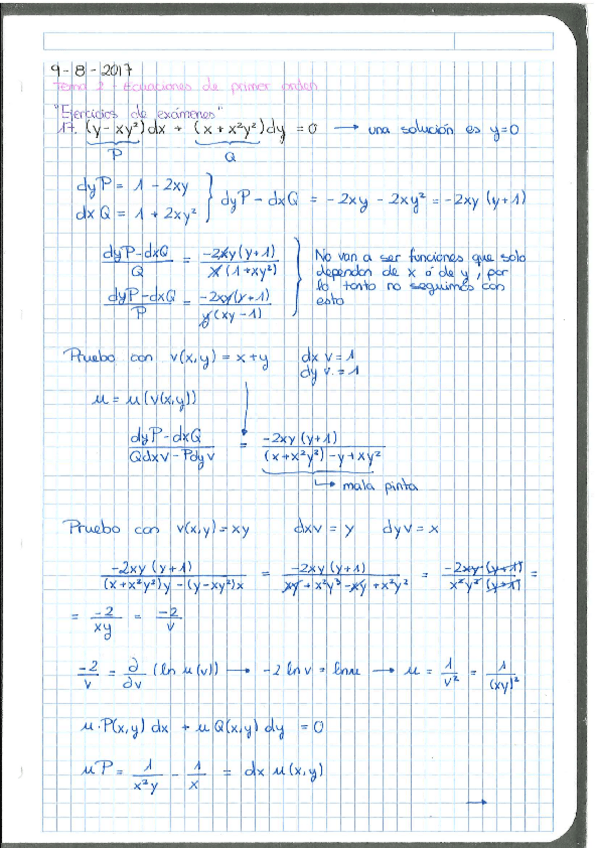 9-8-2017
Tema 2 - Ecuaciones de primer orden
"Ejercicios de exámenes"
17. (y-xy²)dx + (x+x²y²)dy = 0 → una solución es y=0
P Q
dyP = 1 - 2xy
dxQ = 1 + 2xy²
dyP - dxQ = -2xy - 2xy² = -2xy (y+1)
(dyP-dxQ)/Q = -2xy(y+1)/(x(1+xy²))
(dyP-dxQ)/P = -2xy(y+1)/(y(xy-1))
No van a ser funciones que solo
dependan de x ó de y, por
lo tanto no seguimos con
esto
Pruebo con v(x,y) = x+y dx v = 1
dy v = 1
μ = μ(v(x,y))
(dyP-dxQ)/(Qdxv-Pdyv) = -2xy(y+1)/((x+x²y²)-y+xy²)
↳ mala pinta
Pruebo con v(x,y) = xy dxv = y dyv = x
-2xy(y+1)/((x+x²y²)y-(y-xy²)x) = -2xy(y+1)/(xy+x²y³-xy+x²y²) = -2xy(y+1)/(x²y²(y+1)) =
= -2/xy = -2/v
-2/v = ∂/∂v (ln μ(v)) → -2 ln v = ln μ → μ = 1/v² = 1/(xy)²
μ·P(x,y) dx + μ Q(x,y) dy = 0
μP = 1/(x²y) - 1/x = dx u(x,y)
→